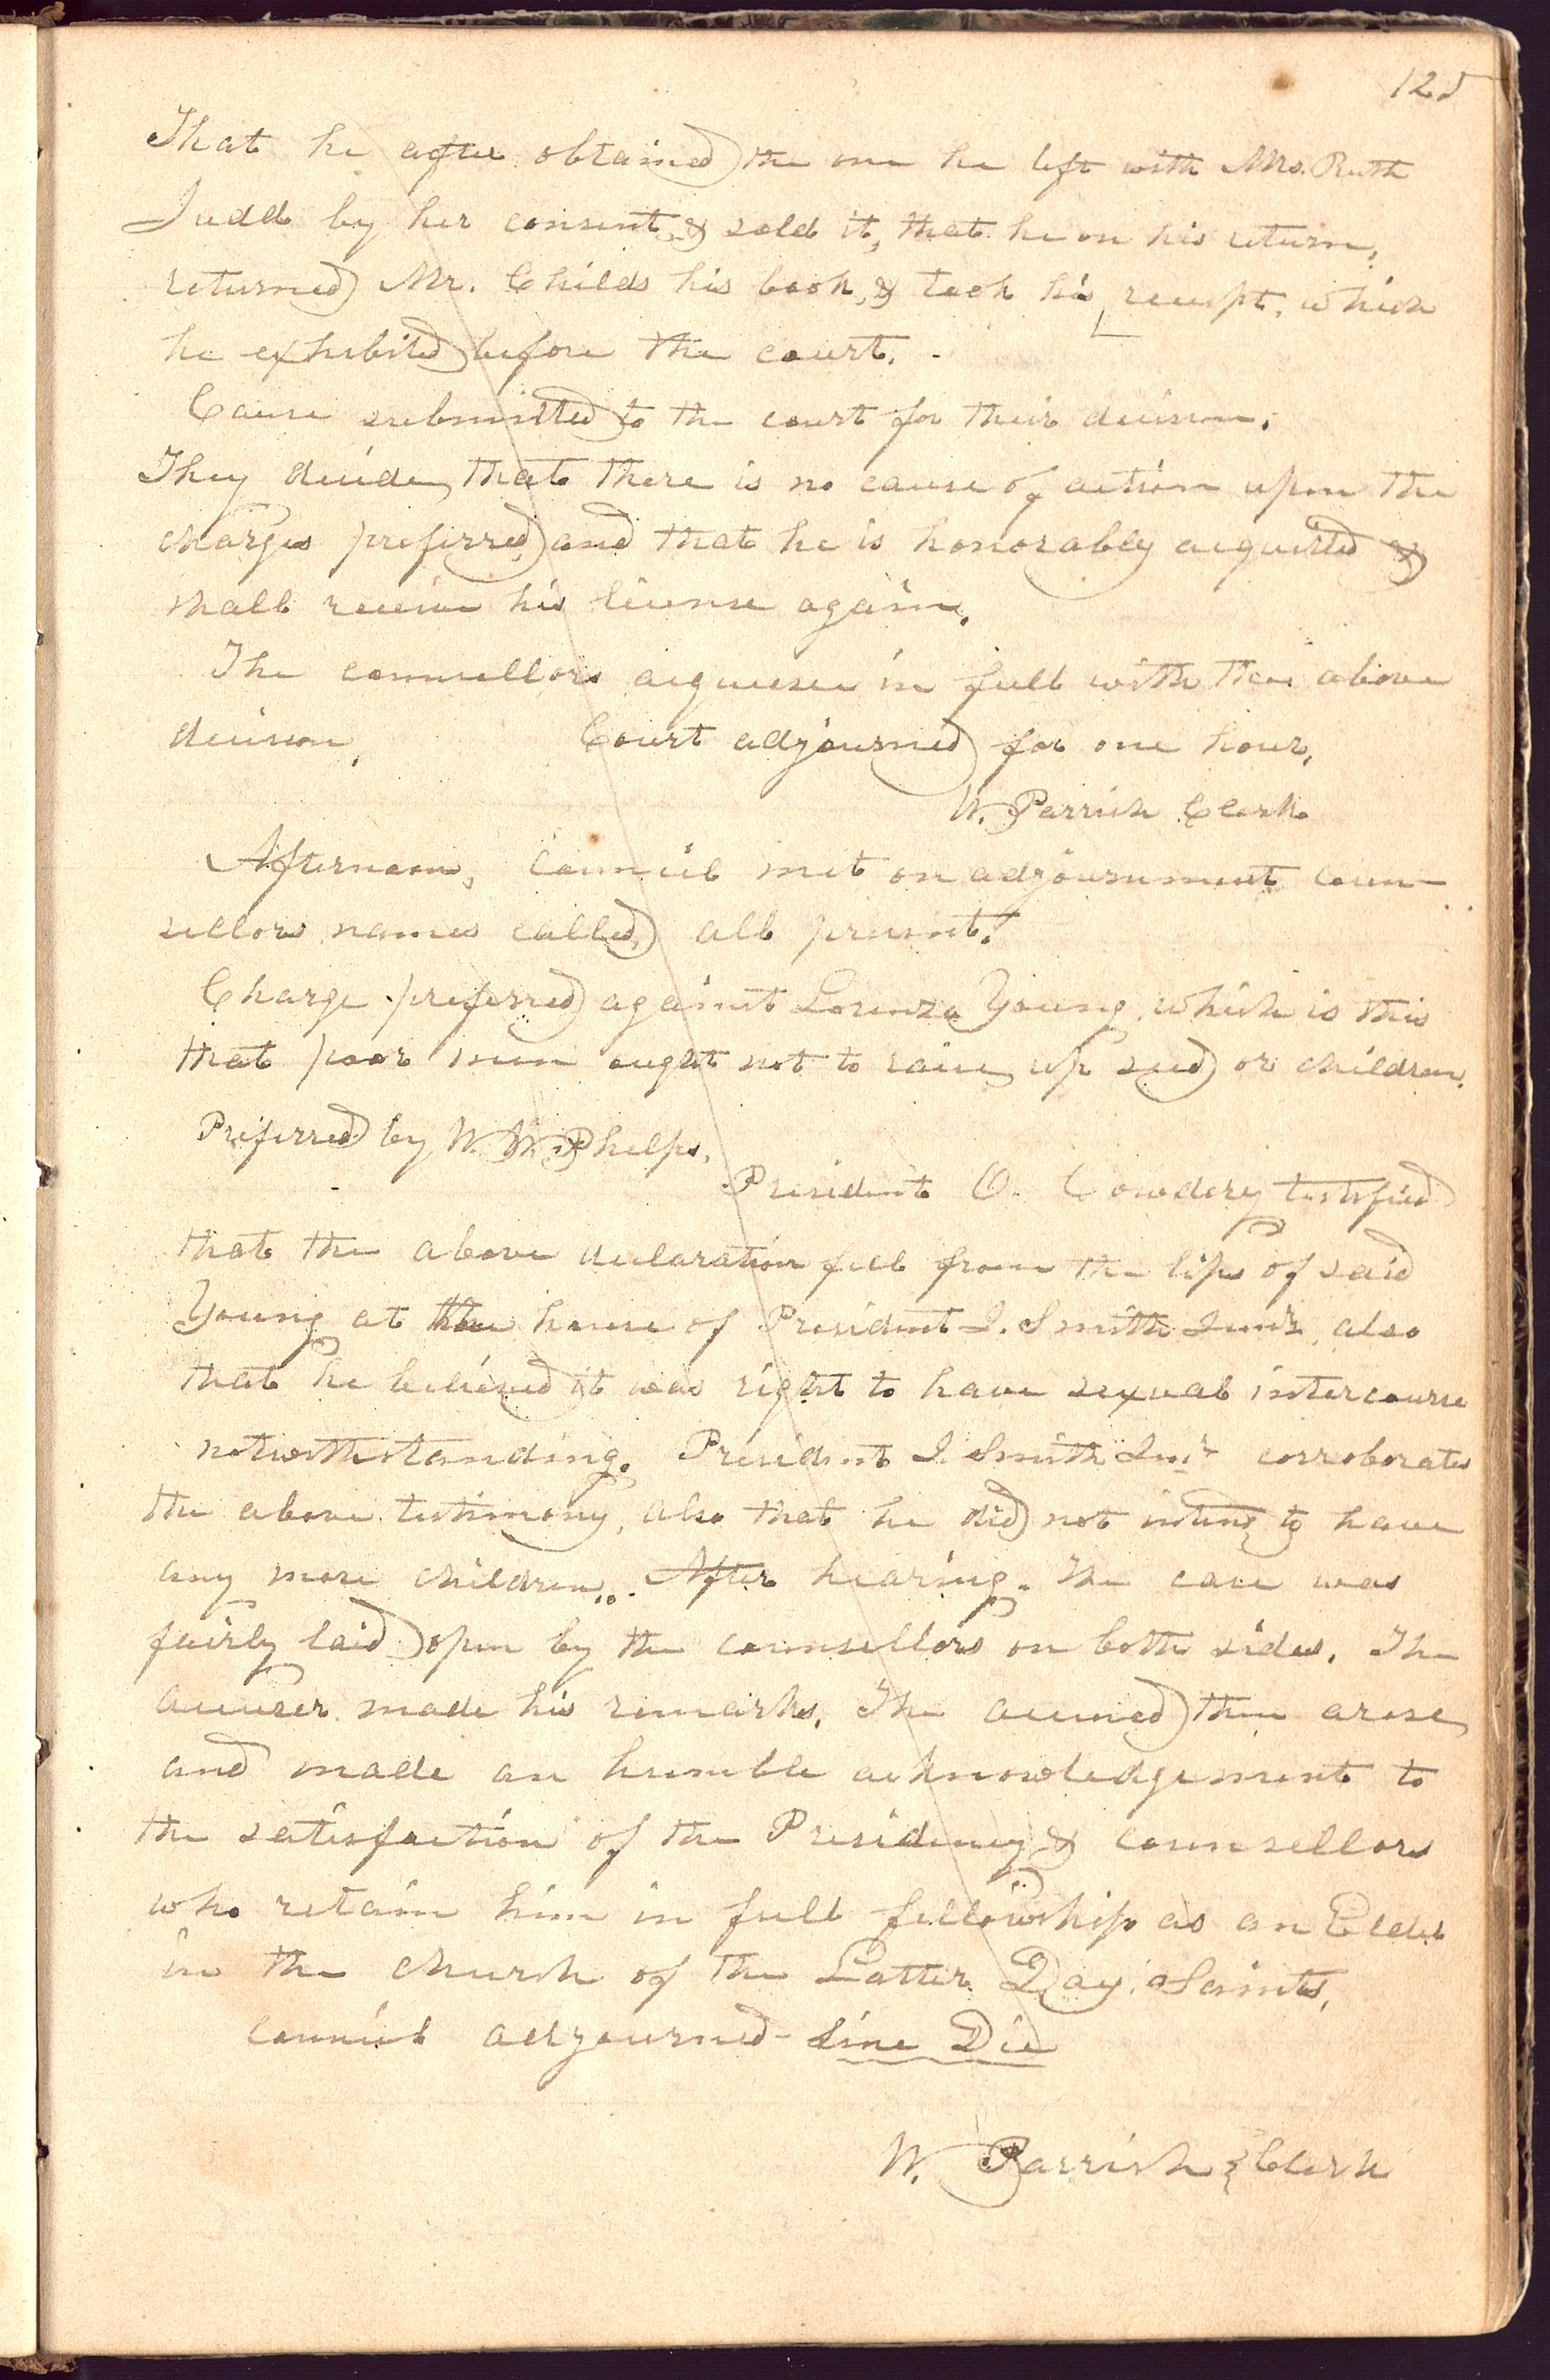 125
That he after obtained the one he left with Mrs. Ruth
Judd by her consent, & sold it, that he on his return,
returned Mr. Childs his book, & took his receipt, which
he exhibited before the court. -
Cause submitted to the court for their decision.
They decide, that there is no cause of action upon the
charges preferred, and that he is honorably acquitted &
shall receive his license again.
The counsellors acquiesce in full with the above
decision. Court adjourned for one hour.
W. Parrish Clerk.
Afternoon, Council met on adjournment coun-
sellors names called, all present.
Charge preferred against Lorenzo Young, which is this
that poor men ought not to raise up seed or children.
Preferred by W. W. Phelps.
President O. Cowdery testified
that the above declaration fell from the lips of said
Young at the house of President J. Smith Junr. also
that he believed it was right to have sexual intercourse
notwithstanding. President J. Smith Junr corroborates
the above testimony, also that he did not intend to have
any more children. After hearing. The case was
fairly laid open by the counsellors on both sides. The
accuser made his remarks. The accused then arose,
and made an humble acknowledgement to
the satisfaction of the Presidency & counsellors
who retain him in full fellowship as an Elder
in the church of the Latter Day Saints,
council adjourned - Sine Die
W. Parrish } Clerk